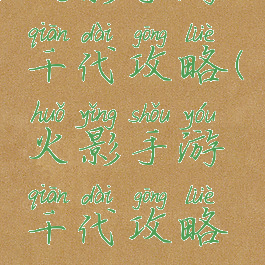 qiān dài gōng lüè
千代攻略(
huǒ yǐng shǒu yóu
火影手游
qiān dài gōng lüè
千代攻略